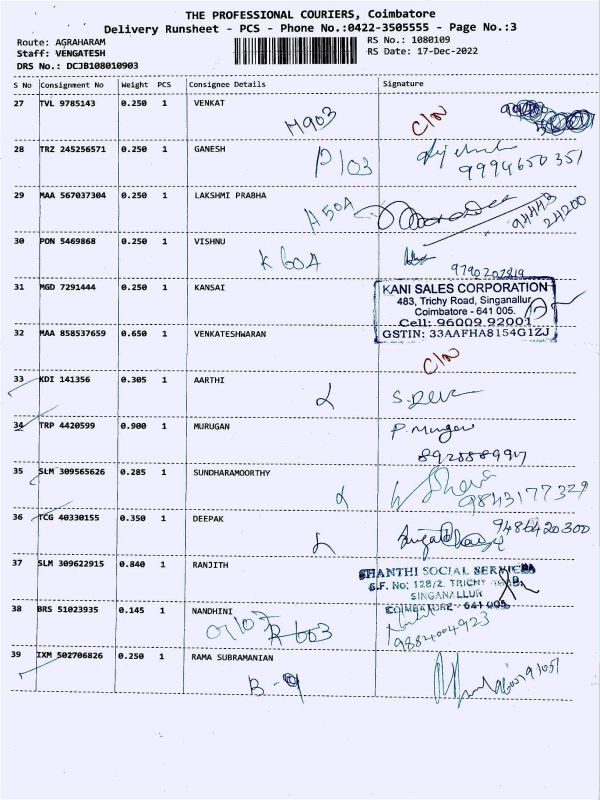 THE PROFESSIONAL COURIERS, Coimbatore
Delivery Runsheet - PCS - Phone No.:0422-3505555 - Page No.:3
Route: AGRAHARAM
RS No.: 1080109
Staff: VENGATESH
RS Date: 17-Dec-2022
DRS No.: DCJB108010903
S No Consignment No Weight PCS Consignee Details Signature
27 TVL 9785143 0.250 1 VENKAT
M903 C/N
28 TRZ 245256571 0.250 1 GANESH
P103 9994650351
29 MAA 567037304 0.250 1 LAKSHMI PRABHA
A50A 94443 24200
30 PON 5469868 0.250 1 VISHNU
K60A
9790202819
31 MGD 7291444 0.250 1 KANSAI
KANI SALES CORPORATION
483, Trichy Road, Singanallur,
Coimbatore - 641 005.
Cell: 96009 92001
GSTIN: 33AAFHA8154G1ZJ
32 MAA 858537659 0.650 1 VENKATESHWARAN
C/N
33 KDI 141356 0.305 1 AARTHI
34 TRP 4420599 0.900 1 MURUGAN
P. Murugan
35 SLM 309565626 0.285 1 SUNDHARAMOORTHY
9843177329
36 TCG 40330155 0.350 1 DEEPAK
9486420300
37 SLM 309622915 0.840 1 RANJITH
SHANTHI SOCIAL SERVICES
S.F. No: 128/2. TRICHY
SINGANALLUR
COIMBATORE - 641 005
38 BRS 51023935 0.145 1 NANDHINI
R603
9884004923
39 IXM 502706826 0.250 1 RAMA SUBRAMANIAN
B-9